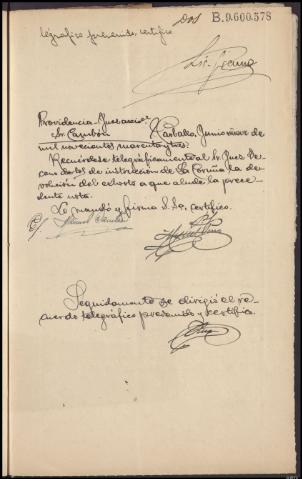 Dos B.9.600.578
legráfico prevenido, certifico
Providencia-Juez accal.
Sr. Cambón Carballo, Junio nueve de
mil novecientos cuarenta y tres.
Recuérdese telegráficamente al Sr. Juez De-
cano de los de instrucción de La Coruña la de-
volución del exhorto a que alude la prece-
dente nota.
Lo mandó y firma S. Sª. certifico.
E/
Seguidamente se dirigió el re-
cuerdo telegráfico prevenido y certifico.